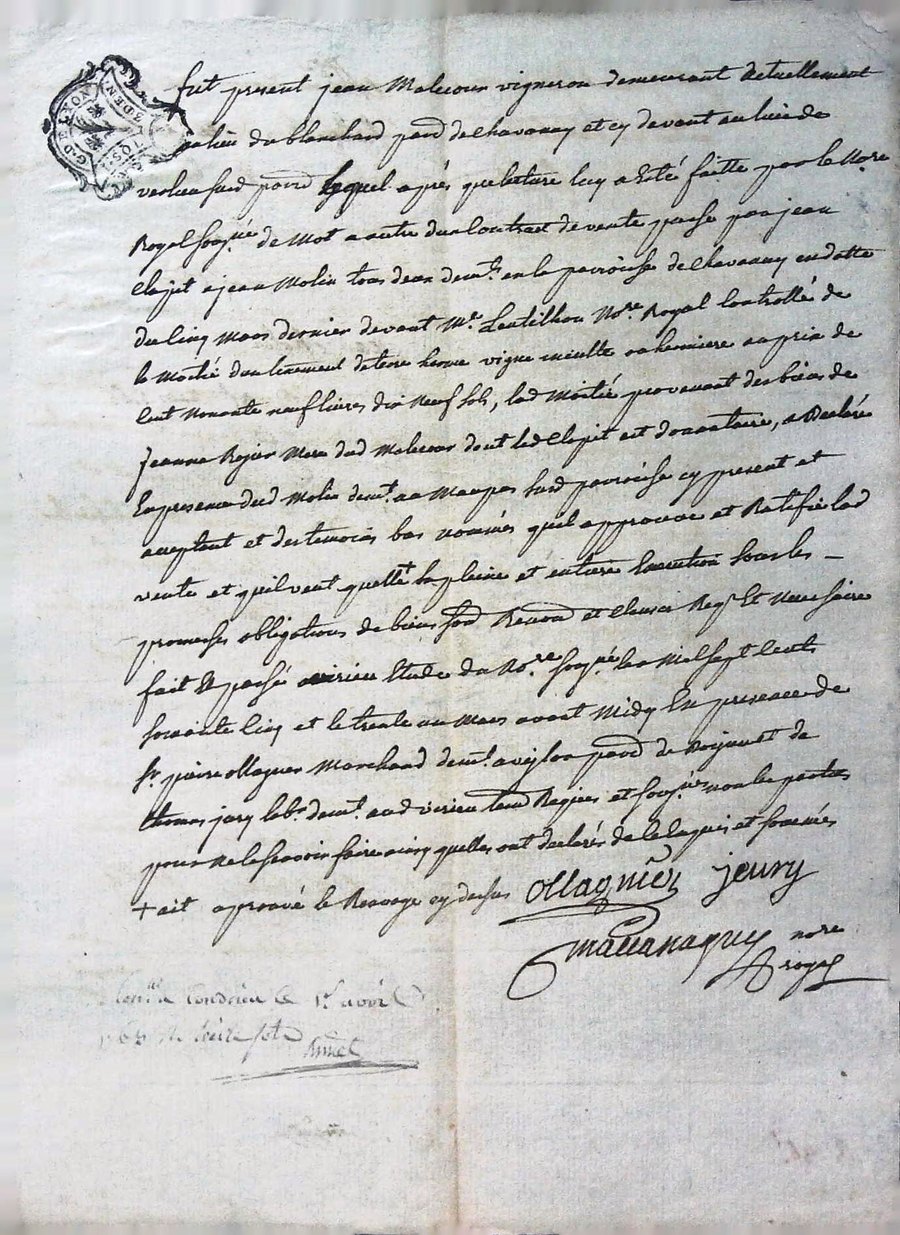 G. DE LYON
2 DEN
fut present jean Malecour vigneron demeurant actuellement
au lieu du blanchard parr de chavanay et cy devant au lieu de
verlieu susd parr lequel après que lecture luy a esté faitte par le Nore
Royal sousgné de mot a autre du contract de vente passé par jean
clapit a jean Molin tous deux demt en la parroisse de chavanay en datte
du cinq Mars dernier devant Me Lentilhon Nore Royal controllé de
la Moitié d'un tenement de terre herme vigne inculte ou henniere au prix de
cent Nonante neuf livres dix Neuf sols, lad Moitié provenant des biens de
jeanne Rojier Mere dud Malecour dont led clapit est donnataire, a declaré
En presence dud Molin demt au Maupas susd parroisse cy present et
acceptant et des temoins bas nommés qu'il approuve et Ratifie lad
vente et qu'il veut quelle sa pleine et entiere Execution sous les
promesses obligations de biens Renond et clauses Reqs Et Necessaire
fait Et passé a virieu Etude du Nore sousgné l'an Mil sept cents
soixante cinq et le trente un Mars avant Midy En presence de
sr pierre ollagner Marchand demt parr de et de
thomas jury labr demt aud virieu temd Requis et sousgnes non les parties
pour Ne le sçavoir faire ainsy quelles ont declarés de ce enquis et sommés
+ ait aprouvé le Renvoye cy dessus
ollagnier jeury
nore
royal
Contlé a condrieu le 1er avril
1765 Re treize sols